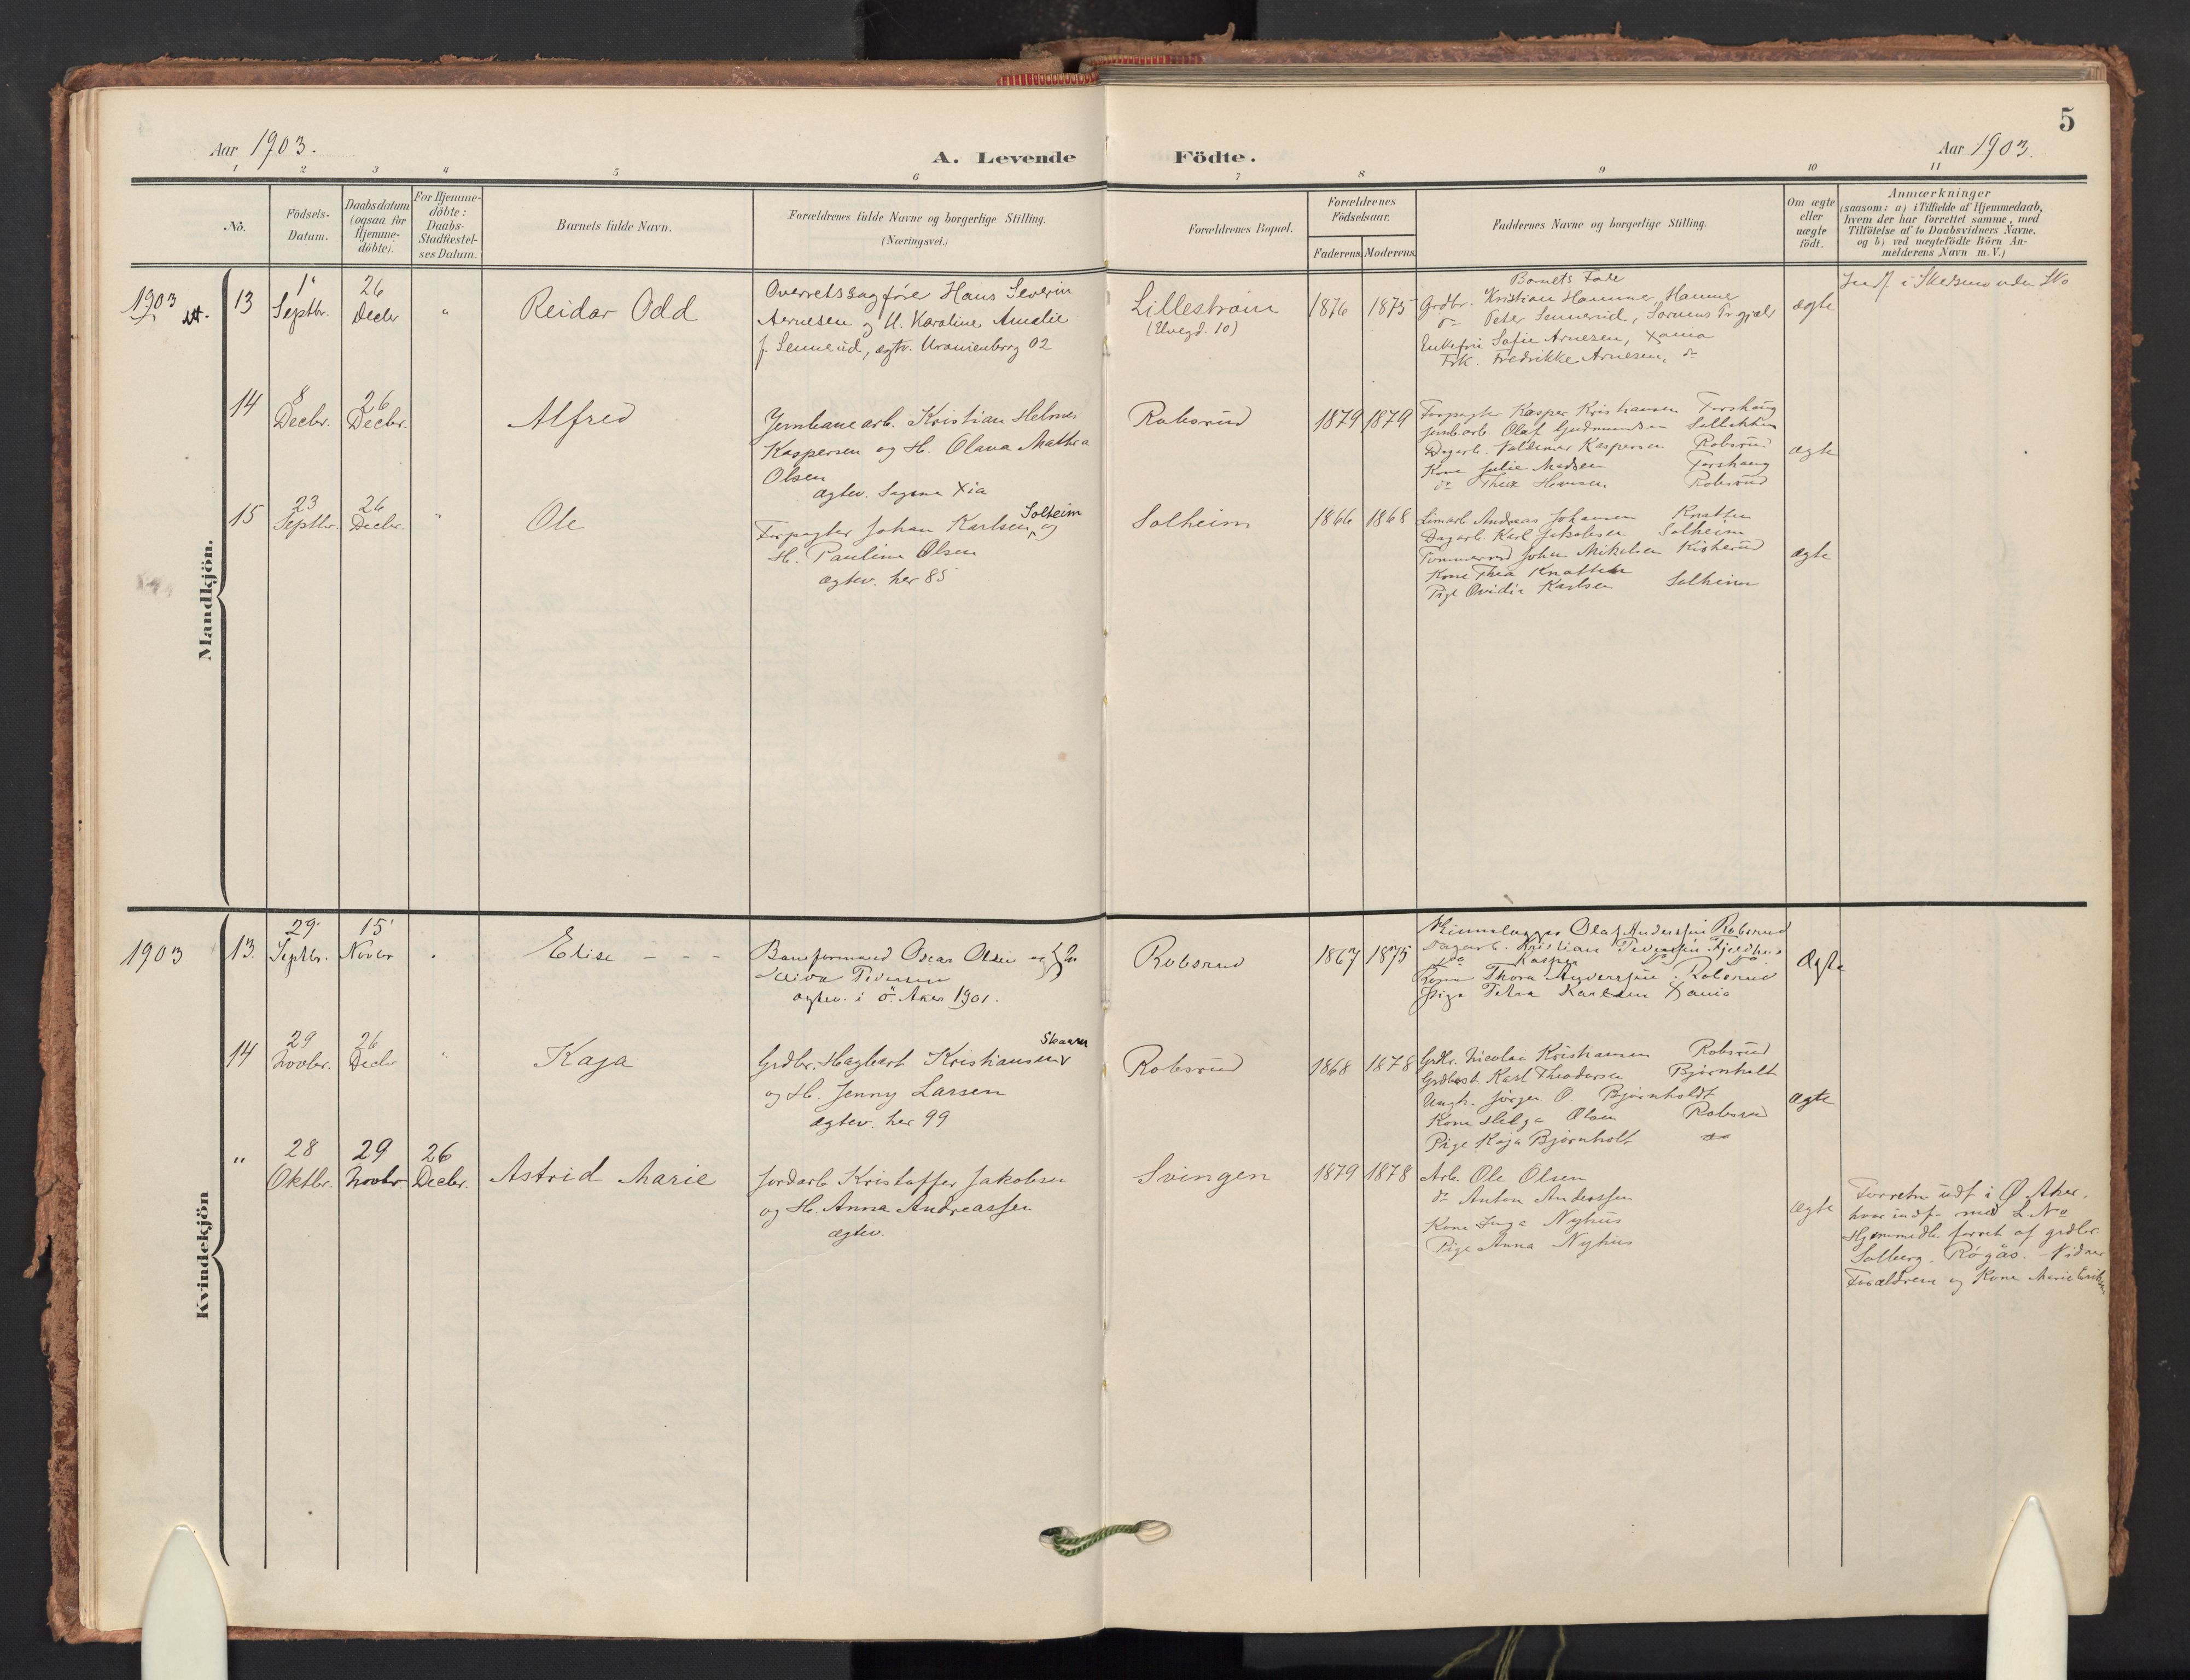 5
Aar 1903.
A. Levende Födte.
Aar 1903.
1 2 3 4 5 6 7 8 9 10 11
No.
Födsels-Datum.
Daabsdatum (ogsaa for Hjemme-döbte).
For Hjemme-döbte: Daabs-Stadfæstel-ses Datum.
Barnets fulde Navn.
Forældrenes fulde Navne og borgerlige Stilling.
(Næringsvei.)
Forældrenes Bopæl.
Forældrenes Födselsaar.
Faderens. Moderens.
Faddernes Navne og borgerlige Stilling.
Om ægte eller uægte födt.
Anmærkninger
(saasom: a) i Tilfælde af Hjemmedaab,
hvem der har forrettet samme, med
Tilföielse af to Daabsvidners Navne,
og b) ved uægtefödte Börn An-
melderens Navn m. V.)
Mandkjön.
1903
13
1
Septbr.
26
Decbr
"
Reidar Odd
Overretssagføre Hans Severin
Arnesen og H. Karoline Amalie
f. Sennerud, ægtv. Uranienborg 02
Lillestrøm
(Elvegd. 10)
1876
1875
Barnets Fade
Grdbr. Kristian Hammer, Hammer
do Peter Sennerud,
Enkefru Sofie Arnesen, Xania
Frk. Fredrikke Arnesen, do
ægte
Indf i Skedsmo uden No
14
8
Decbr.
26
Decbr.
Alfred
Jernbanearb. Kristian Helmer
Kaspersen og H. Olava Mathea
Olsen
ægtev. Sagene Xia
Robsrud
1879
1879
Forpagter Kasper Kristiansen Forshaug
Jernb.arb. Olaf Gudmundsen
Dagarb. Valdemar Kaspersen Robsrud
Kone Julie Madsen Forshaug
do Thea Hansen Robsrud
ægte
15
23
Septbr.
26
Decbr.
"
Ole
Forpagter Johan Karlsen, Solheim og
H. Pauline Olsen
ægtev. her 85
Solheim
1866
1868
Andreas Johansen Knatten
Dagarb. Karl Jakobsen Solheim
Tømmermd Johan Mikelsen
Kone Thea Knatten
Pige Ovidia Karlsen Solheim
ægte
Kvindekjön
1903
13.
29
Septbr.
15
Novbr
"
Elise - - -
Baneformand Oscar Olsen og H
Pedersen
ægtev. i Ö. Aker 1901.
Robsrud
1867
1875
Olaf Anderssen Robsrud
Dagarb. Kristian Pedersen
do Kasper do do
Kone Thora Anderssen Robsrud
Pige Petra Karlsen Xania
Ægte
14
29
Novbr.
26
Decbr
"
Kaja
Grdbr. Hagbart Kristiansen Skaarer
og H. Jenny Larsen
ægtev. her 99
Robsrud
1868
1878
Grdbr. Nicolai Kristiansen Robsrud
Karl Theodorsen Bjørnholt
Ungk. Jørgen O. Bjørnholdt
Kone Helga Olsen Robsrud
Pige Kaja Bjørnholt do
ægte
"
28
Oktbr.
29
Novbr.
26
Decbr.
Astrid Marie
Jordarb Kristoffer Jakobsen
og H. Anna Andreassen
ægtev.
Svingen
1879
1878
Arb. Ole Olsen
do Anton Anderssen
Kone Inga Nyhus
Pige Anna Nyhus
ægte
Forretn udf i Ø Aker.
hvor indf. med L No
Hjemmedb. forret af grdbr.
Solberg, Rógås. Vidner
Forældrene og Kone Marie